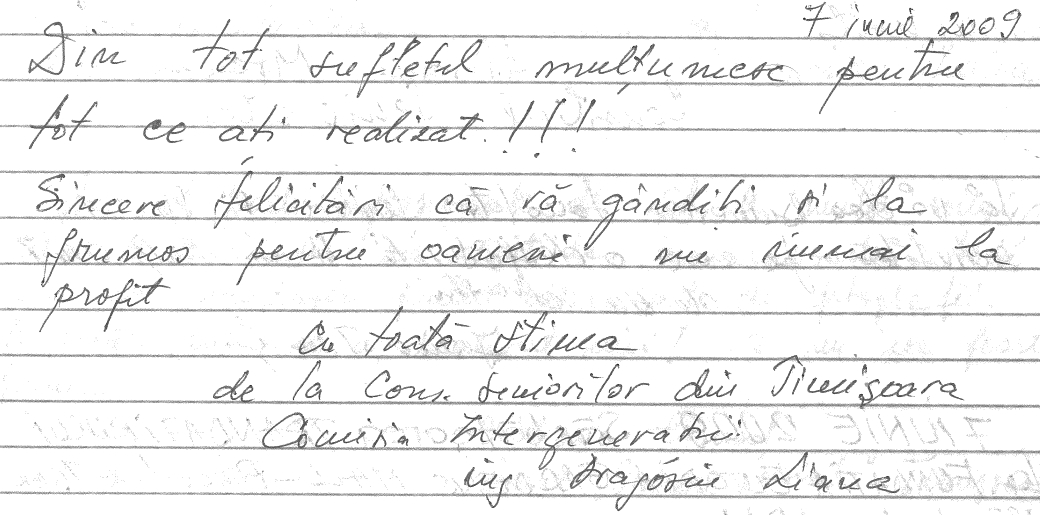 7 iunie 2009
Din tot sufletul mulțumesc pentru
tot ce ați realizat.!!!
Sincere felicitări că vă gândiți și la
frumos pentru oameni nu numai la
profit
Cu toată stima
de la Cons. Seniorilor din Timișoara
Comisia Intergenerații
ing Liana